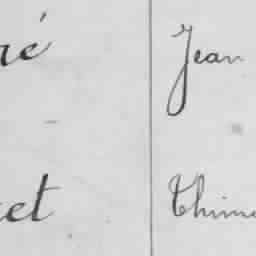 ré Jean
et Thim